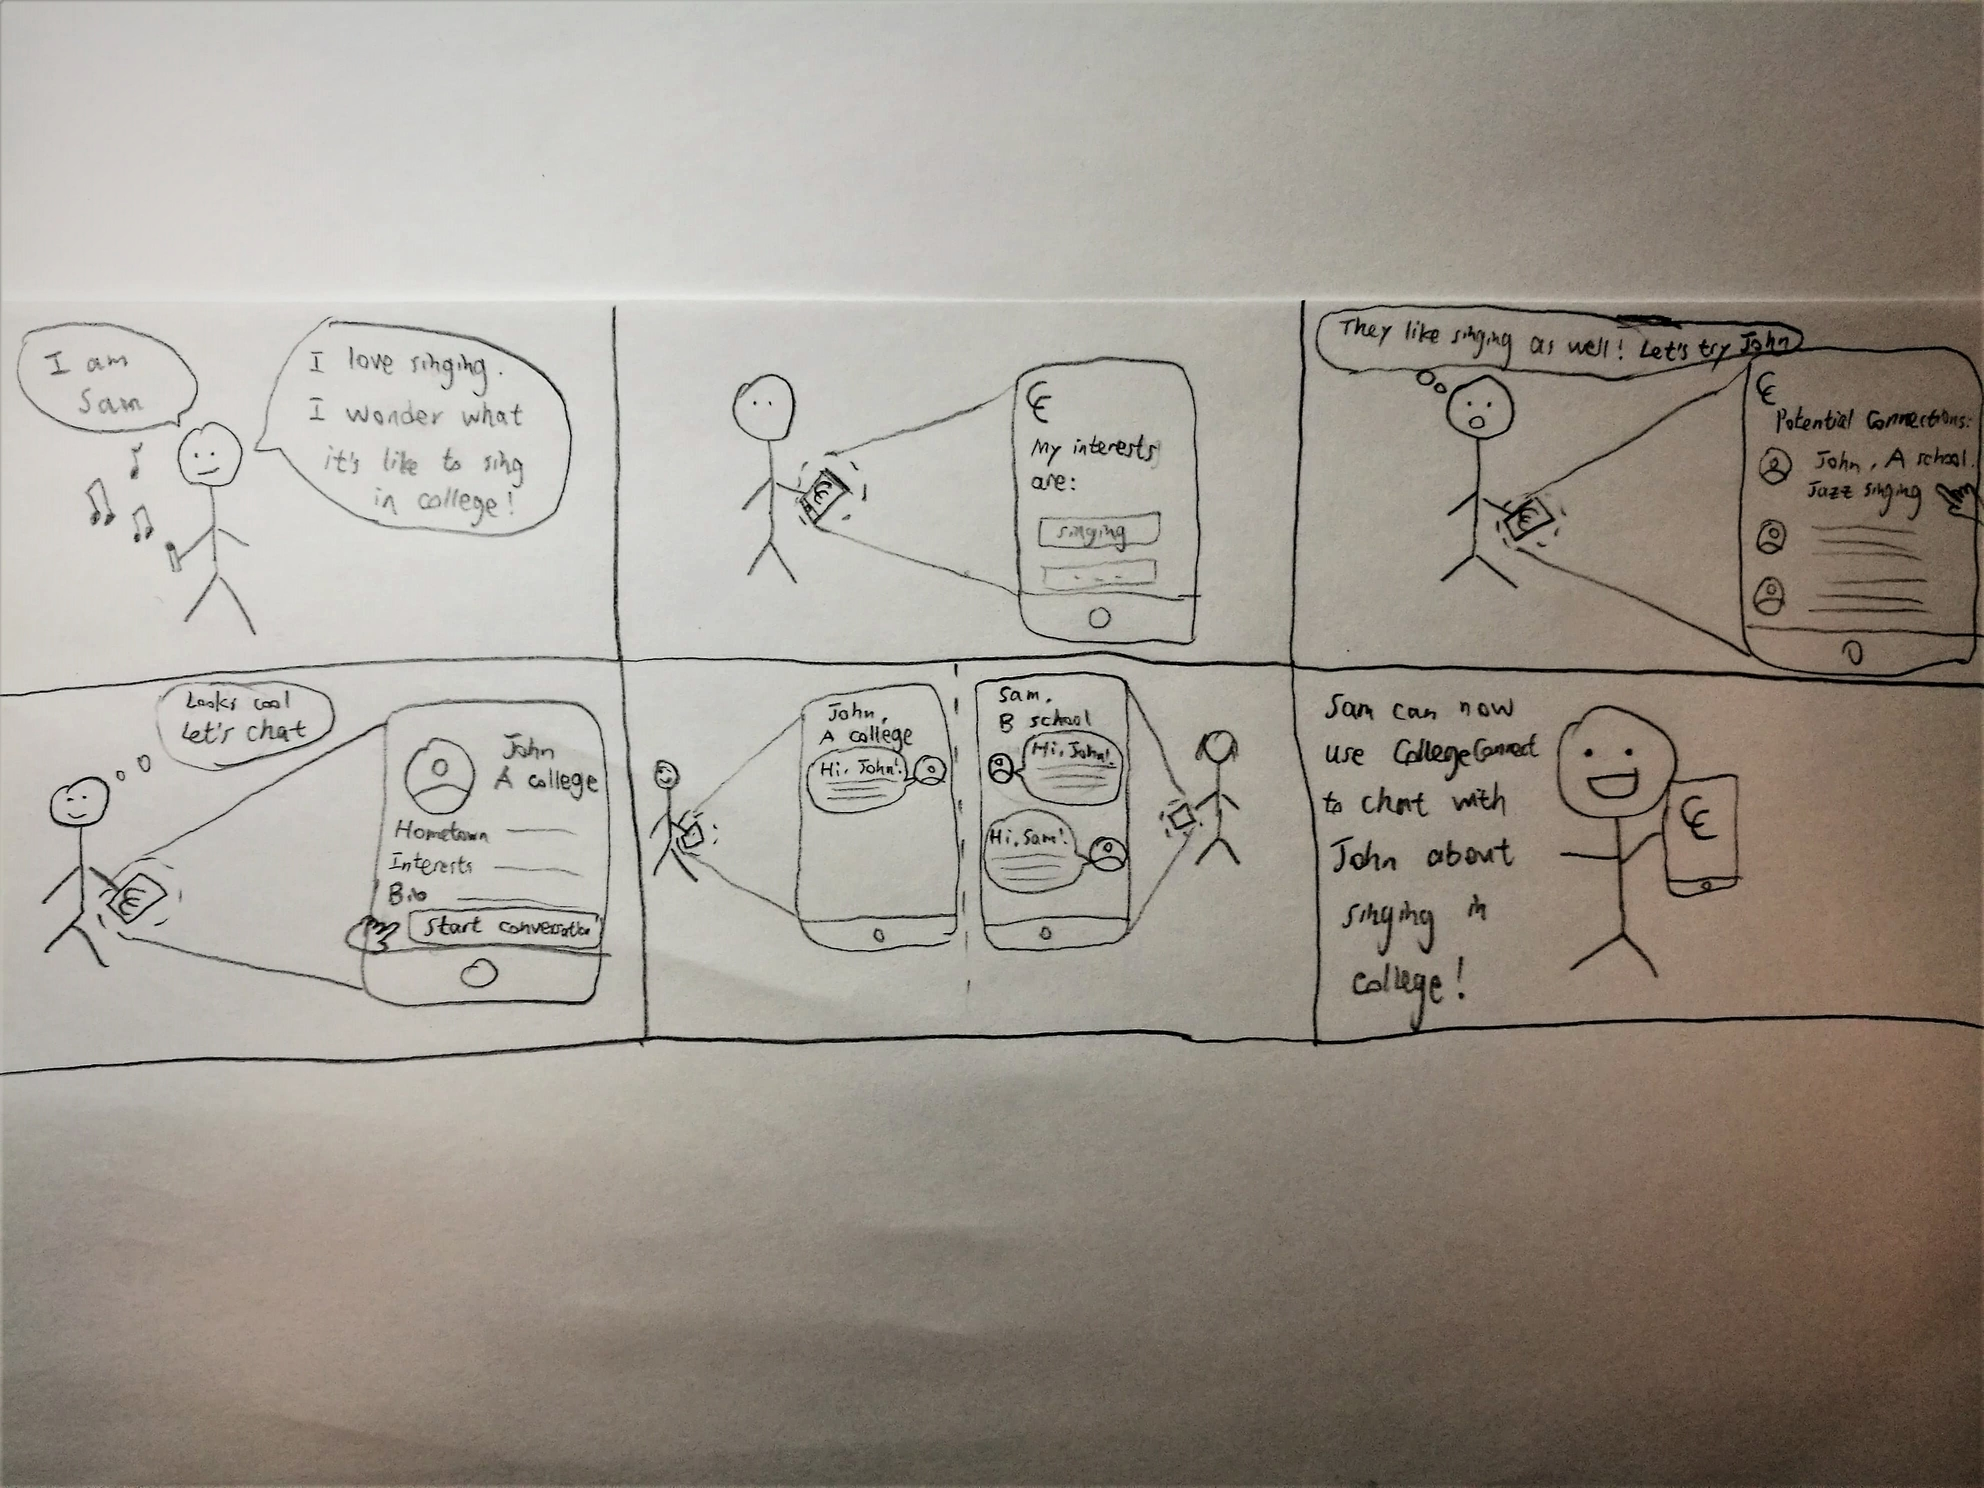 I am
Sam
I love singing.
I wonder what
it's like to sing
in college!
CC
My interests
are:
singing
- - -
They like singing as well! Let's try John
CC
Potential Connections:
John, A school.
Jazz singing
Looks cool
Let's chat
John
A college
Hometown
Interests
Bio
Start conversation
John,
A college
Hi, John!
Sam,
B school
Hi, John!
Hi, Sam!
Sam can now
use CollegeConnect
to chat with
John about
singing in
college!
CC